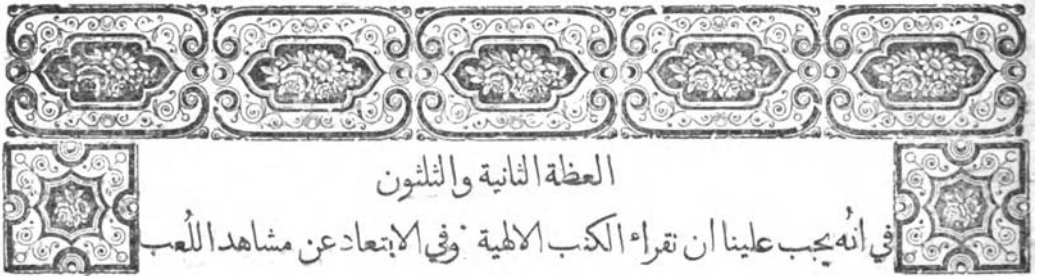 العظة الثانية والثلثون
في انُه يجب علينا ان نقراء الكتب الالهية ٠ وفي الابتعاد عن مشاهد اللُعب